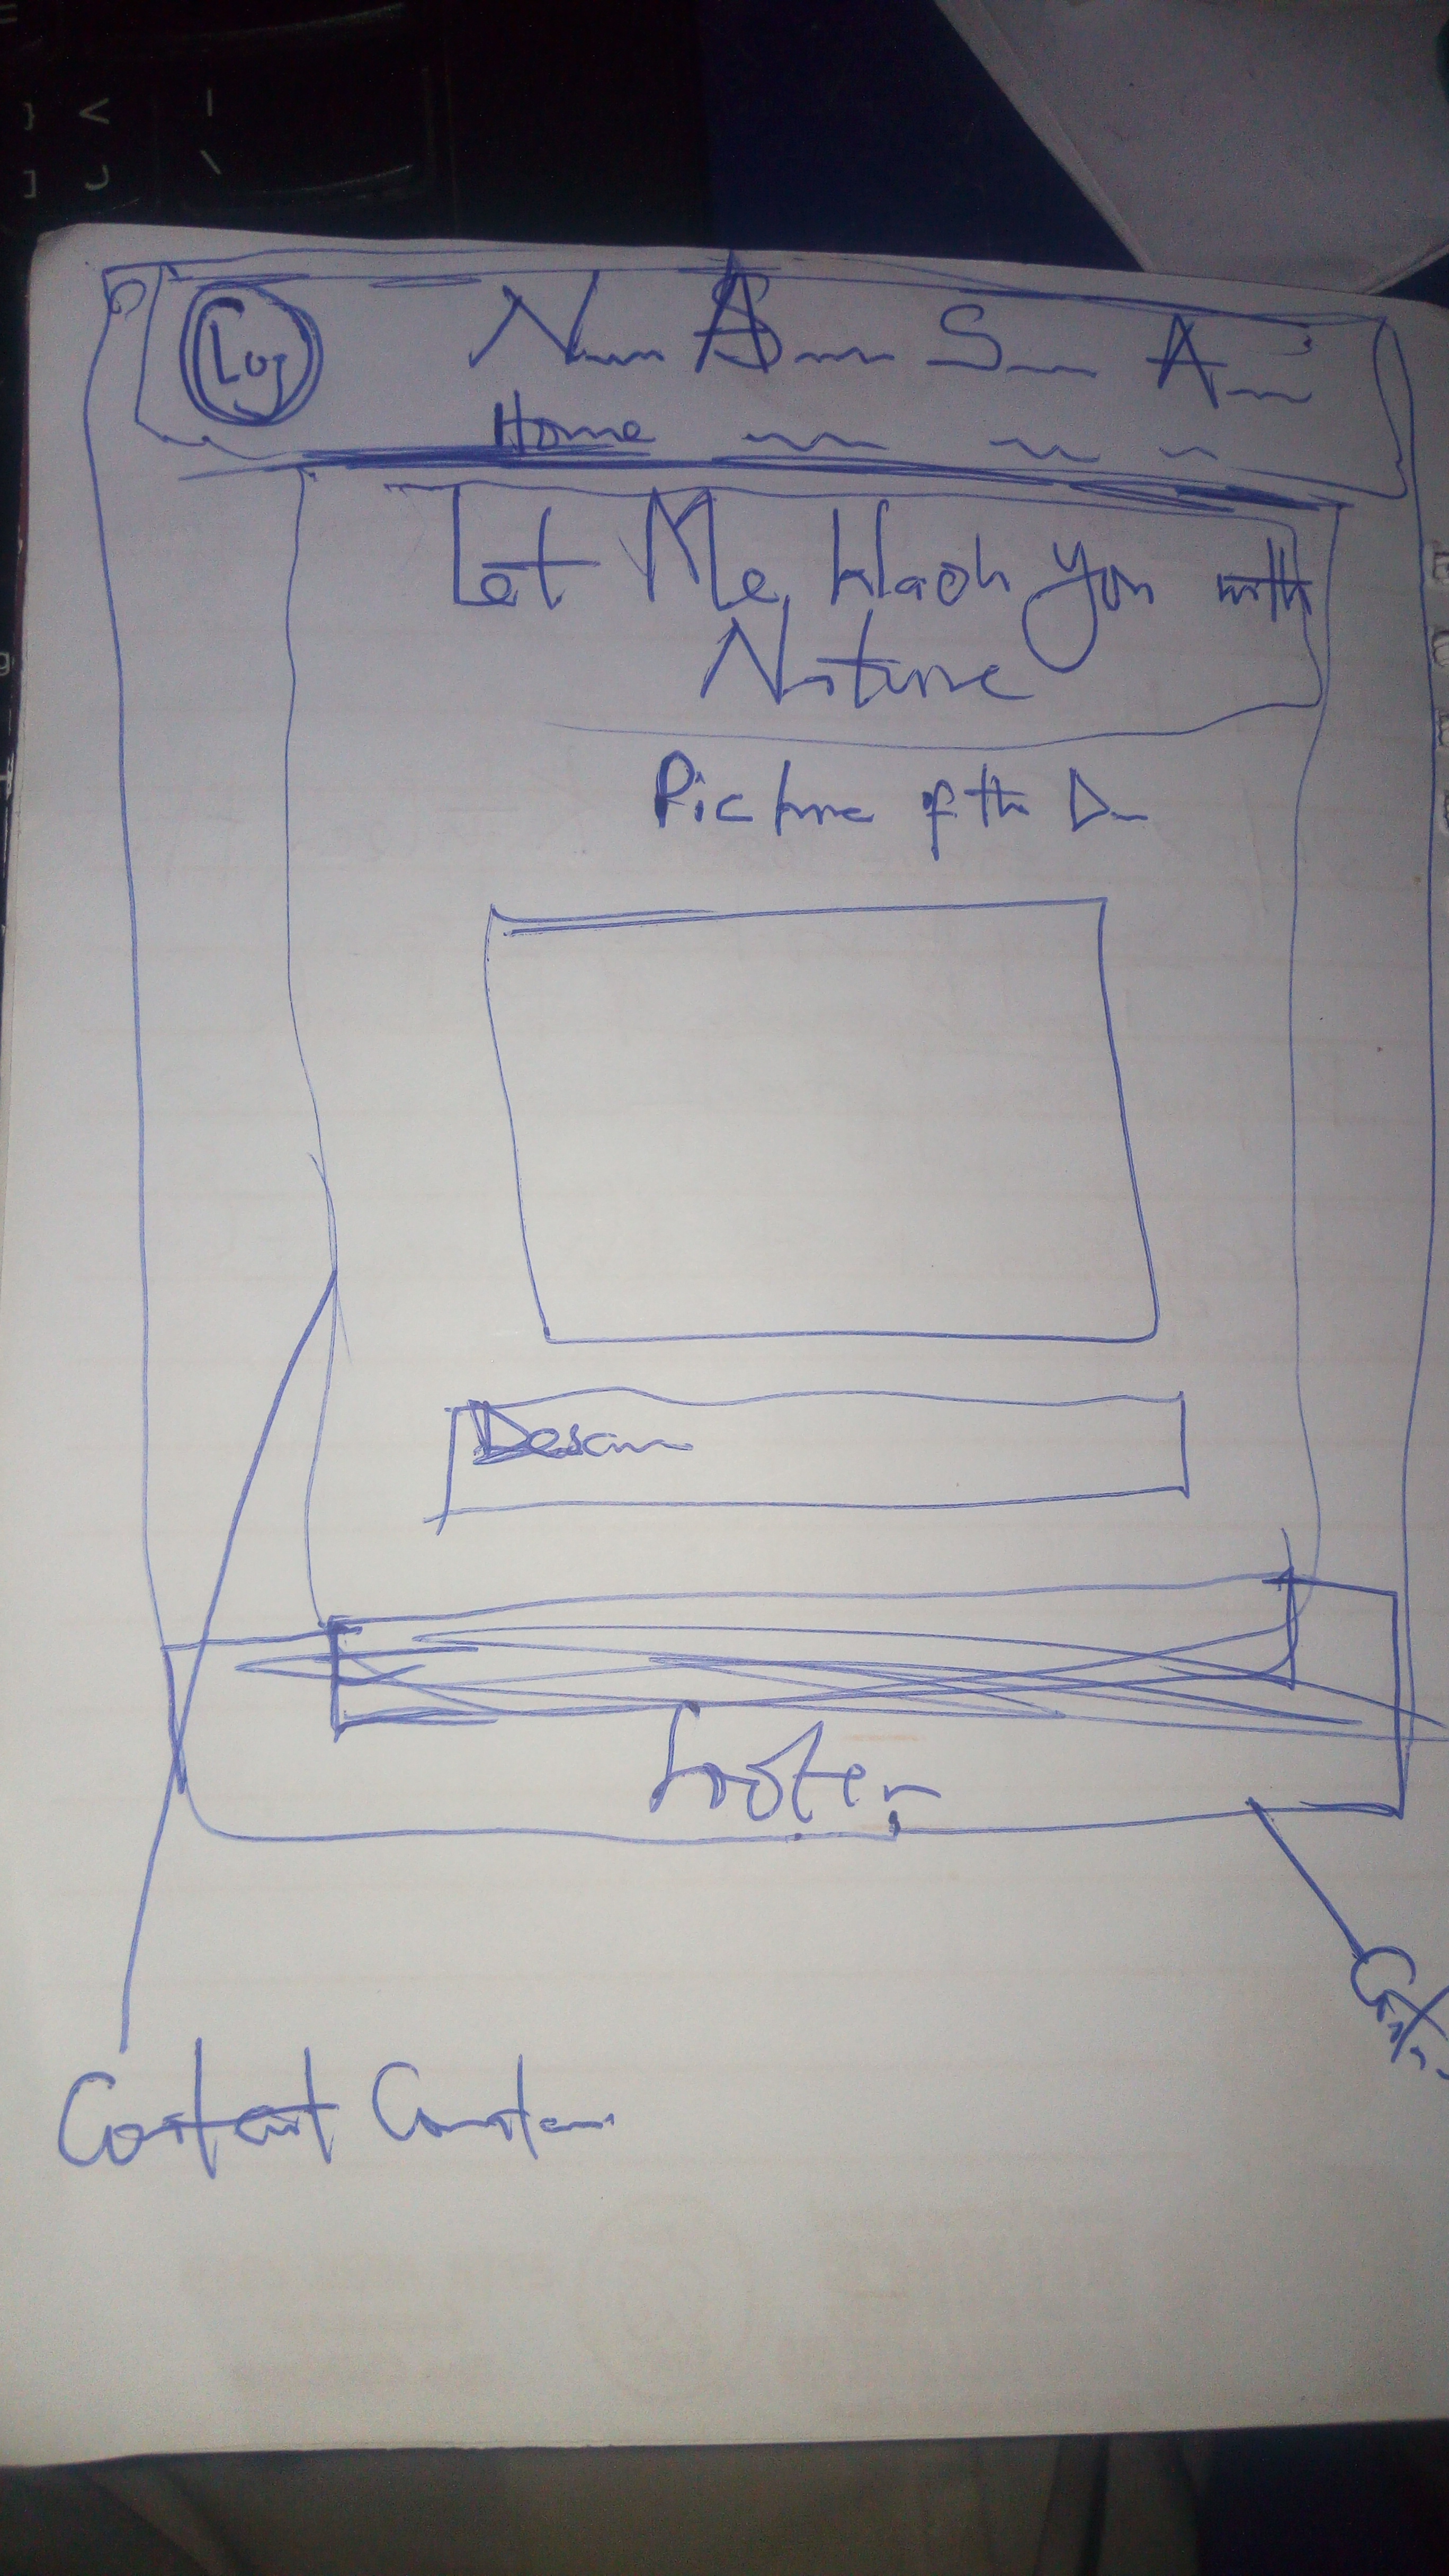 Log N A S A
Home
Let Me Wach you with
Nature
Picture of the D
Desc
footer
Content